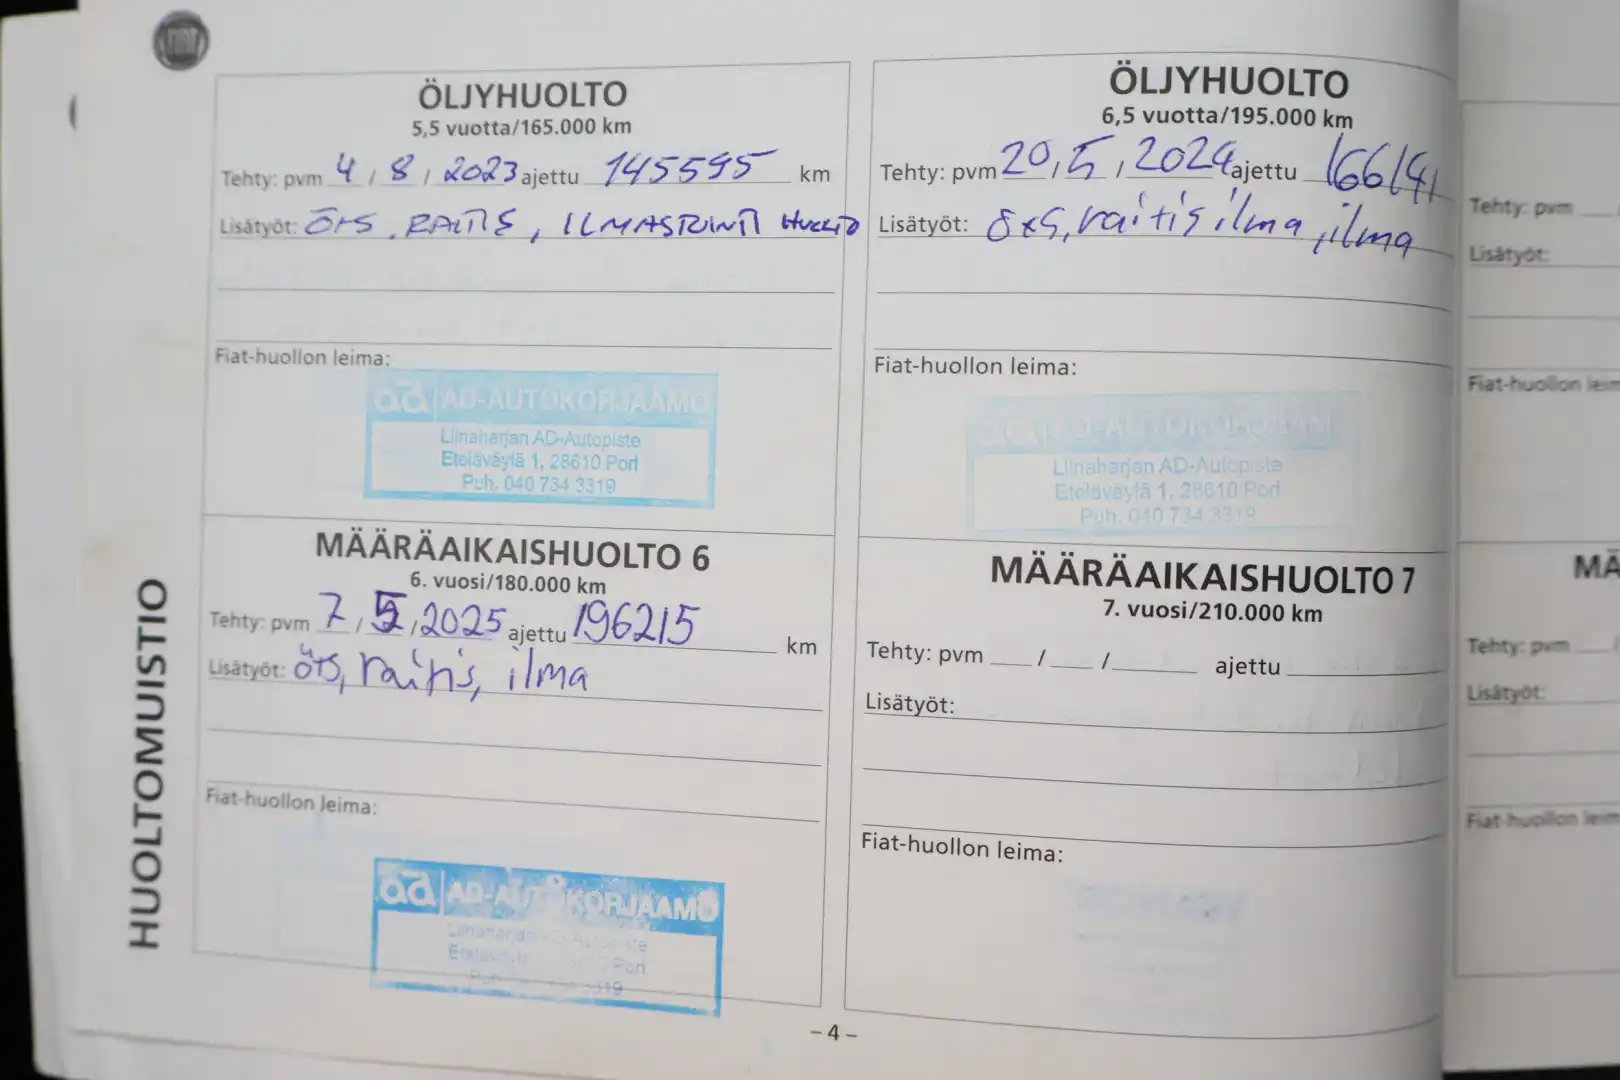 FIAT
HUOLTOMUISTIO
ÖLJYHUOLTO
5,5 vuotta/165.000 km
Tehty: pvm 4 / 8 / 2023 ajettu 145595 km
Lisätyöt: ÖTS, RAITIS, ILMASTOINTI HUOLTO
Fiat-huollon leima:
ad AD-AUTOKORJAAMO
Liinaharjan AD-Autopiste
Eteläväylä 1, 28610 Pori
Puh. 040 734 3319
ÖLJYHUOLTO
6,5 vuotta/195.000 km
Tehty: pvm 20 / 5 / 2024 ajettu 166141
Lisätyöt: öts, raitis ilma, ilma
Fiat-huollon leima:
ad AD-AUTOKORJAAMO
Liinaharjan AD-Autopiste
Eteläväylä 1, 28610 Pori
Puh. 040 734 3319
MÄÄRÄAIKAISHUOLTO 6
6. vuosi/180.000 km
Tehty: pvm 7 / 5 / 2025 ajettu 196215 km
Lisätyöt: öts, raitis, ilma
Fiat-huollon leima:
ad AD-AUTOKORJAAMO
Liinaharjan AD-Autopiste
Pori
3319
MÄÄRÄAIKAISHUOLTO 7
7. vuosi/210.000 km
Tehty: pvm / / ajettu
Lisätyöt:
Fiat-huollon leima:
– 4 –
Tehty: pvm
Lisätyöt:
Fiat-huollon leim
MÄ
Tehty: pvm
Lisätyöt:
Fiat-huollon leim